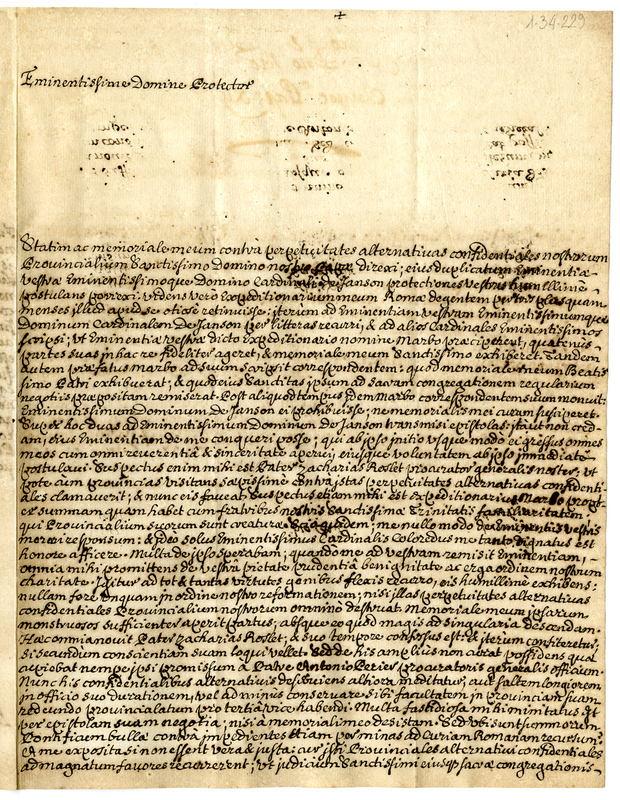 1-34-229
Eminentissime Domine Protector
Statim ac memoriale meum contrà perpetuitates alternativas confidentiales nostrorum
Provincialium Sanctissimo Domino direxi; ejus duplicatum Eminentiæ
vestræ Eminentissimoque Domino Cardinali de Janson protectiones vestras humillime
postulans porrexi. videns vero Expeditionarium meum Romæ degentem plusquam
menses illud apud se otiose retinuisse: iterum ad Eminentiam vestram Eminentissimumque
Dominum Cardinalem de Janson per litteras recurri, & ad alios Cardinales Eminentissimos
scripsi; ut Eminentia vestra dicto Expeditionario nomine Marbo præciperet, quatenus
partes suas in hac re fideliter ageret, & memoriale meum Sanctissimo exhiberet. Tandem
autem præfatus marbo ad suum scripsit correspondentem: quod memoriale meum Beatis
simo Patri exhibuerat, & quod ejus Sanctitas ipsum ad sacram congregationem regularium
negotiis præpositam remiserat. Post aliquod tempus idem Marbo correspondentem suum monuit:
Eminentissimum Dominum de Janson ei prohibuisse; ne memorialis mei curam susciperet.
Super hoc duas ad Eminentissimum Dominum de Janson transmisi epistolas: ita ut non cred-
am, ejus Eminentiam de me conqueri posse; qui ab ipso initio usque modo ei gressus omnes
meos cum omni reverentiâ & sinceritate aperui, ejusque voluntatem ab ipso immediatè
postulavi. Suspectus enim mihi est Pater Zacharias Roslet procurator generalis noster, ut
pote cum provincias visitans sæpissime contrà istas perpetuitates alternativas confidenti-
ales clamaverit; & nunc eis faveat. Suspectus etiam mihi est expeditionarius Marbo propt-
er summam quam habet cum fratribus nostris Sanctissimæ Trinitatis familiaritatem
qui Provincialium suorum sunt creaturæ. me nullo modo de Eminentiis vestris
mereri responsum: & ideo solus Eminentissimus Cardinalis Coloredus me tanto dignatus est
honore afficere. Multa de ipso sperabam; quando me ad vestram remisit Eminentiam,
omnia mihi promittens de vestra pietate prudentiâ benignitate ac erga ordinem nostrum
charitate. Igitur ad tot & tantas virtutes genibus flexis recurro, eis humillime exhibens:
nullam fore unquam in ordine nostro reformationem; nisi illas perpetuitates alternativas
confidentiales Provincialium nostrorum omnino destruat. Memoriale meum ipsarum
monstruosos sufficienter aperit partus; absque eo quod magis ad singularia descendam.
Hæc omnia novit Pater Zacharias Roslet, & suo tempore confessus est: & iterum confiteretur:
si secundum conscientiam suam loqui vellet. Sed de his amplius non curat possidens quod
cupiebat nempe ipsi promissum a Patre Antonio Perier procuratoris generalis officium.
Nunc his confidentialibus alternativis deserviens altiora meditatur; aut saltem longiorem
in officio suo durationem, vel ad minus conservare sibi facultatem in provinciam suam
redeundo provincialatum pro tertia vice habendi. Multa fastidiosa mihi minitatus est
per epistolam suam negotia; nisi a memoriali meo desistam. Sed ubi sunt summorum
Pontificum bullæ contrà impedientes etiam per minas ad Curiam Romanam recursum:
& me exposita si non essent vera & justa: cur isti Provinciales alternativi confidentiales
ad magnatum favores recurrerent; ut judicium Sanctissimi ejusque sacræ congregationis